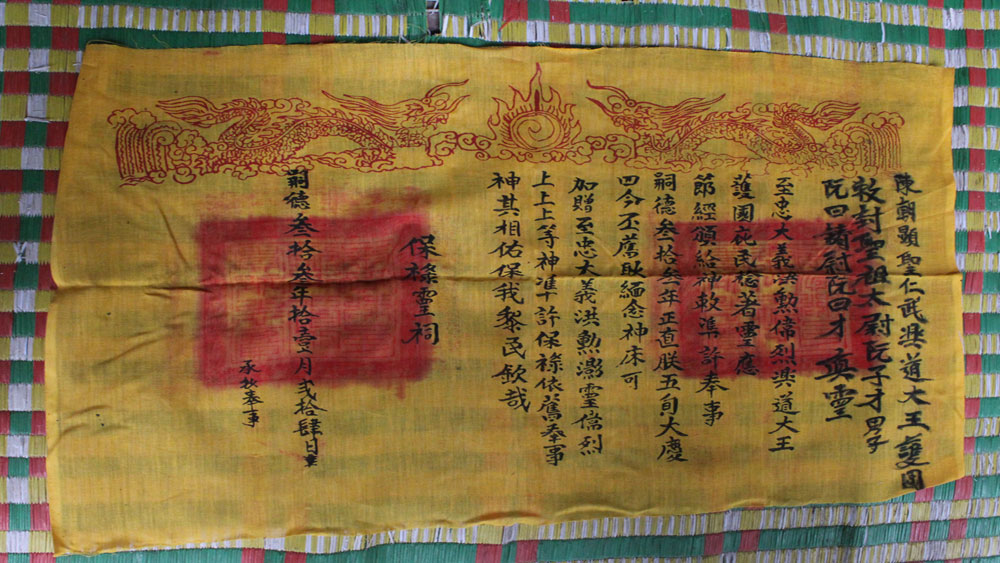 陳朝顯聖仁武興道大王護国
敕封聖祖太尉阮子才男子
阮曰請尉阮曰才真靈
至忠大義洪勲偉烈興道大王
護國庇民稔著靈應
節經頒給神敕準許奉事
祠德叁拾叁年正直朕五旬大慶
四今丕膺耿緬念神床可
加贈至忠大義洪勲濔靈偉烈
上上上等神準許保祿依舊奉事
神其相佑保我黎民欽哉
保祿靈祠
嗣德叁拾叁年拾壹月弍拾肆日
承抄奉事